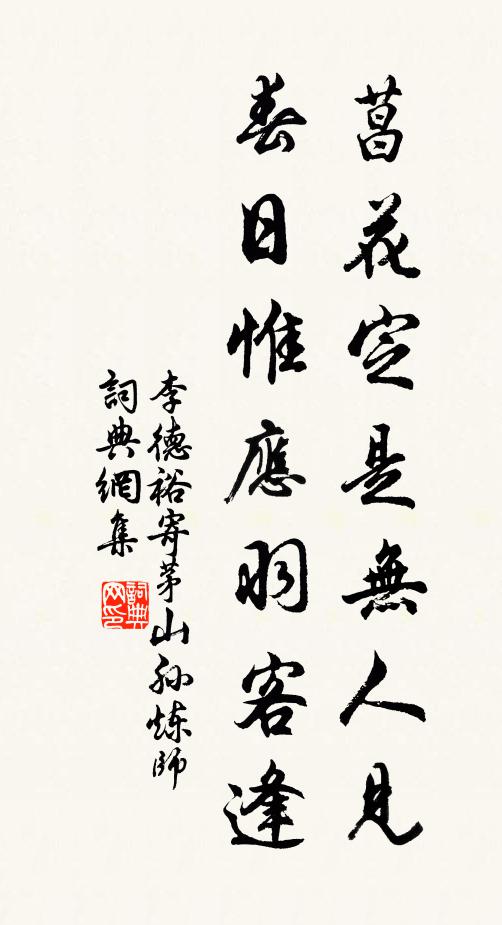 菖花定是無人見
春日惟應羽客逢
李德裕寄茅山孙炼師
詞典網集
詞典网印